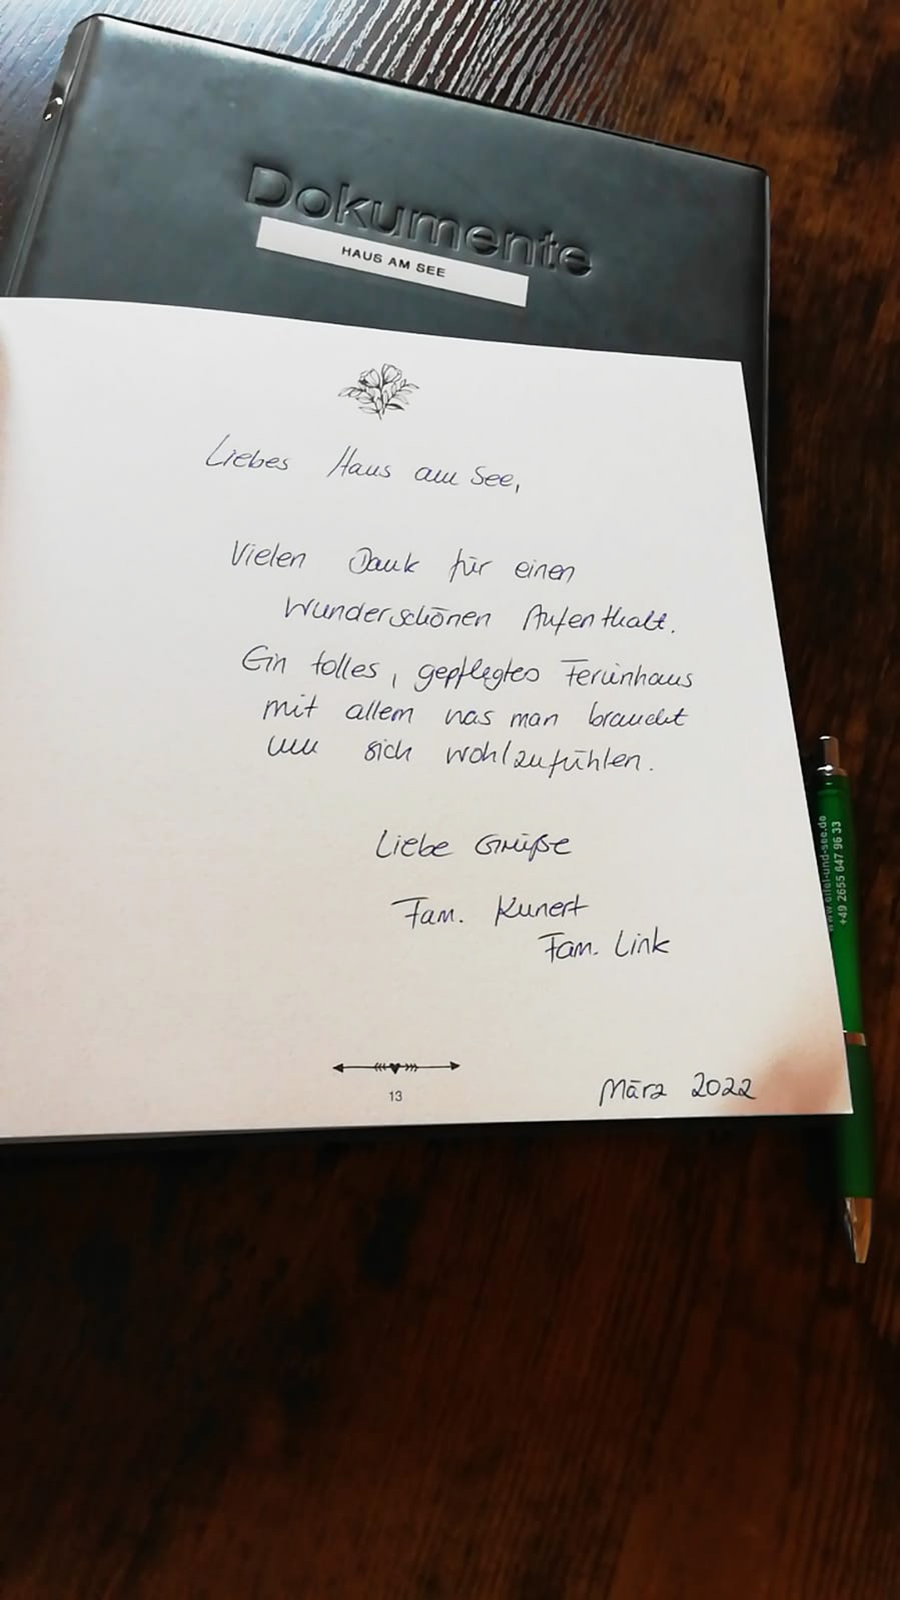 Dokumente
HAUS AM SEE
Liebes Haus am See,
Vielen Dank für einen
wunderschönen Aufenthalt.
Ein tolles, gepflegtes Ferienhaus
mit allem was man braucht
um sich wohlzufühlen.
Liebe Grüße
Fam. Kunert
Fam. Link
13
März 2022
www.eifel-und-see.de
+49 2655 647 96 33